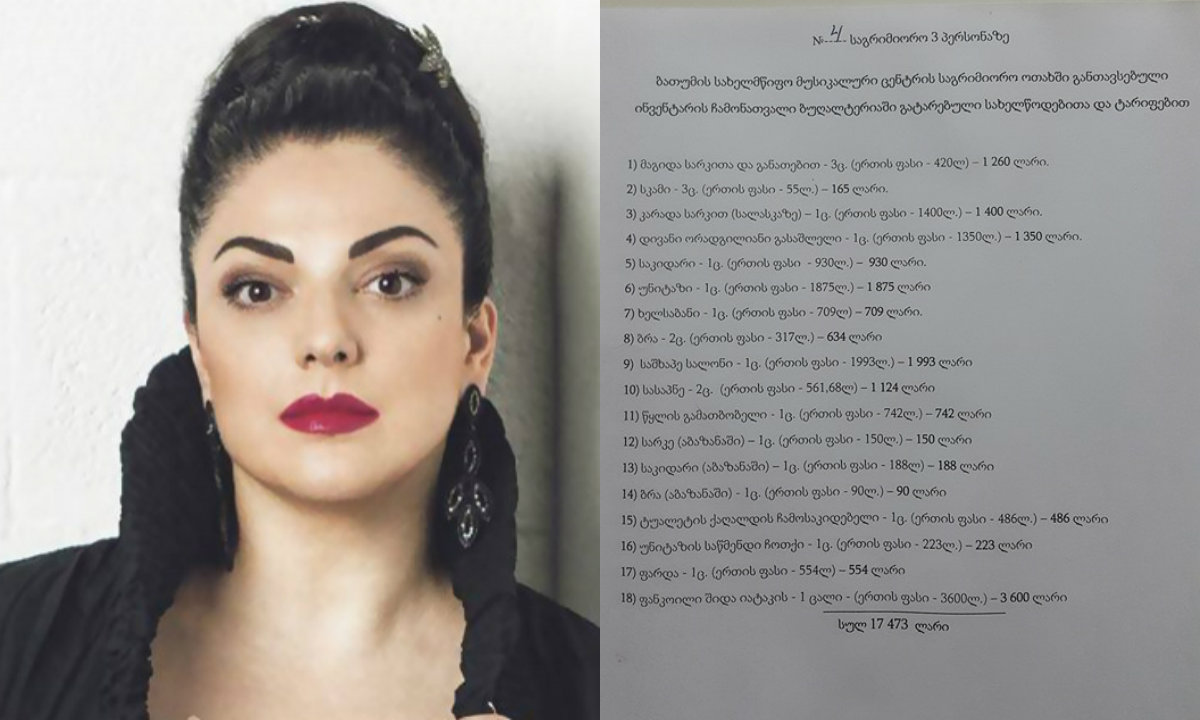 № 4 საგრიმიორო 3 პერსონაზე
ბათუმის სახელმწიფო მუსიკალური ცენტრის საგრიმიორო ოთახში განთავსებული
ინვენტარის ჩამონათვალი ბუღალტერიაში გატარებული სახელწოდებითა და ტარიფებით
1) მაგიდა სარკითა და განათებით - 3ც. (ერთის ფასი - 420ლ) – 1 260 ლარი.
2) სკამი - 3ც. (ერთის ფასი - 55ლ.) – 165 ლარი.
3) კარადა სარკით (სალასკაზე) – 1ც. (ერთის ფასი - 1400ლ.) – 1 400 ლარი.
4) დივანი ორადგილიანი გასაშლელი - 1ც. (ერთის ფასი - 1350ლ.) – 1 350 ლარი.
5) საკიდარი - 1ც. (ერთის ფასი - 930ლ.) – 930 ლარი.
6) უნიტაზი - 1ც. (ერთის ფასი - 1875ლ.) – 1 875 ლარი
7) ხელსაბანი - 1ც. (ერთის ფასი - 709ლ) – 709 ლარი.
8) ბრა - 2ც. (ერთის ფასი - 317ლ.) – 634 ლარი
9) საშხაპე სალონი - 1ც. (ერთის ფასი - 1993ლ.) – 1 993 ლარი
10) სასაპნე - 2ც. (ერთის ფასი - 561,68ლ) – 1 124 ლარი
11) წყლის გამათბობელი - 1ც. (ერთის ფასი - 742ლ) – 742 ლარი
12) სარკე (აბაზანაში) – 1ც. (ერთის ფასი - 150ლ.) – 150 ლარი
13) საკიდარი (აბაზანაში) – 1ც. (ერთის ფასი - 188ლ) – 188 ლარი
14) ბრა (აბაზანაში) - 1ც. (ერთის ფასი - 90ლ.) – 90 ლარი
15) ტუალეტის ქაღალდის ჩამოსაკიდებელი - 1ც. (ერთის ფასი - 486ლ.) – 486 ლარი
16) უნიტაზის საწმენდი ჩოთქი - 1ც. (ერთის ფასი - 223ლ.) – 223 ლარი
17) ფარდა - 1ც. (ერთის ფასი - 554ლ) – 554 ლარი
18) ფანკოილი შიდა იატაკის - 1 ცალი - (ერთის ფასი - 3600ლ.) – 3 600 ლარი
სულ 17 473 ლარი